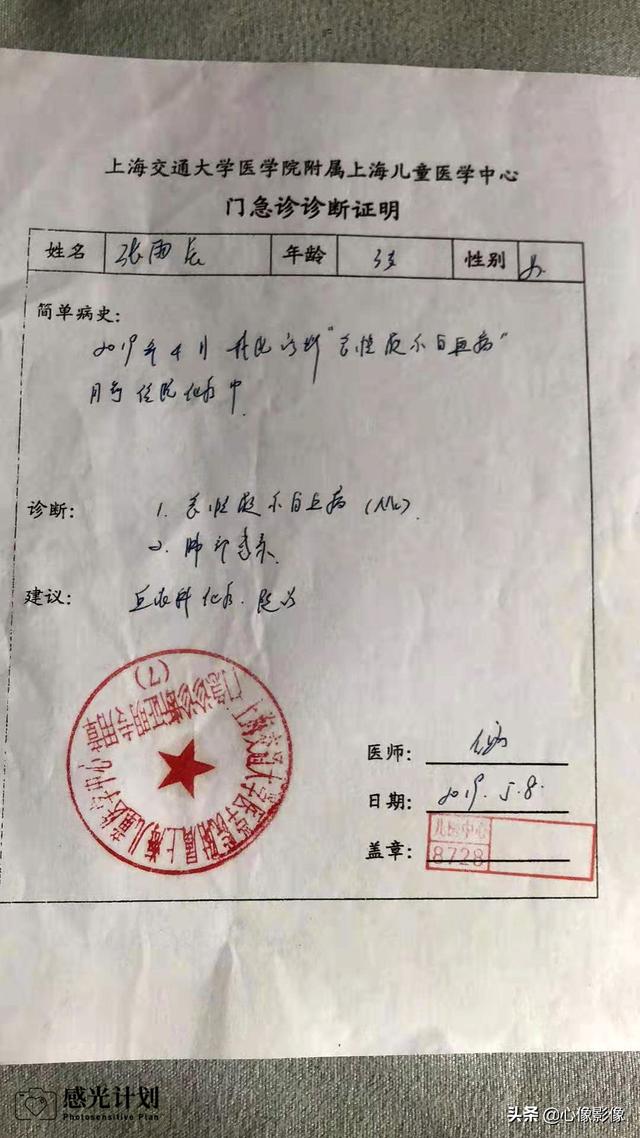 上海交通大学医学院附属上海儿童医学中心
门急诊诊断证明
姓名 张雨 年龄 性别 女
简单病史:
2019年4月 我院诊断"急性髓系白血病"
住院化疗中
诊断: 1. 急性髓系白血病
2. 肺部感染
建议: 血液科化疗.随访
上海交通大学医学院附属上海儿童医学中心
门急诊诊断证明专用章
(7)
医师:
日期: 2019.5.8.
盖章: 儿医中心
8728
感光计划
Photosensitive Plan
头条 @心像影像